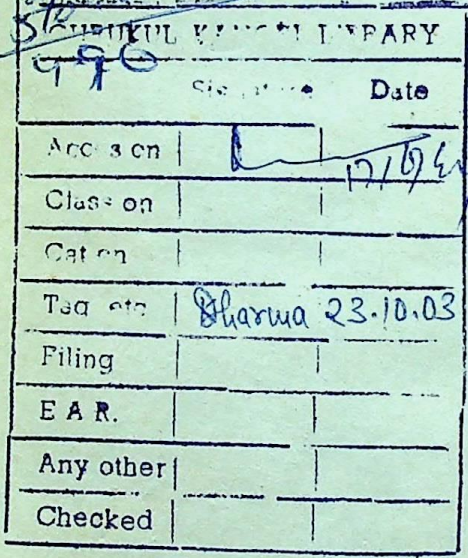 GURUKUL KANGRI LIBRARY
Signature Date
Acc s on
Class on
Cat on
Tag etc Sharma 23.10.03
Filing
E A R.
Any other
Checked